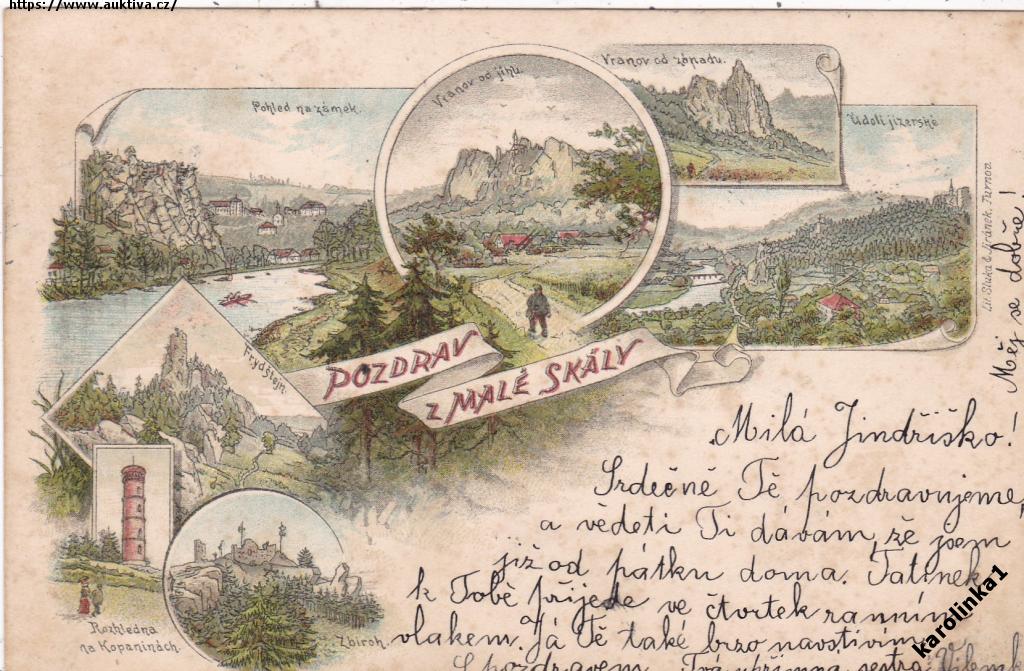 https://www.auktiva.cz/
Pohled na zámek.
Vranov od jihu.
Vranov od západu.
Údolí jizerské
Lit. Sluka & Jiránek, Turnov.
Frydštejn.
POZDRAV
Z MALÉ SKÁLY
Rozhledna
na Kopaninách.
Zbiroh.
Milá Jindřiško!
Srdečně Tě pozdravujeme,
a vědeti Ti dávám, že jsem
již od pátku doma. Tatínek
k Tobě přijede ve čtvrtek ranním
vlakem. Já Tě také brzo navštívím
S pozdravem Tvá upřímná sestra
Měj se dobře!
karolinka1